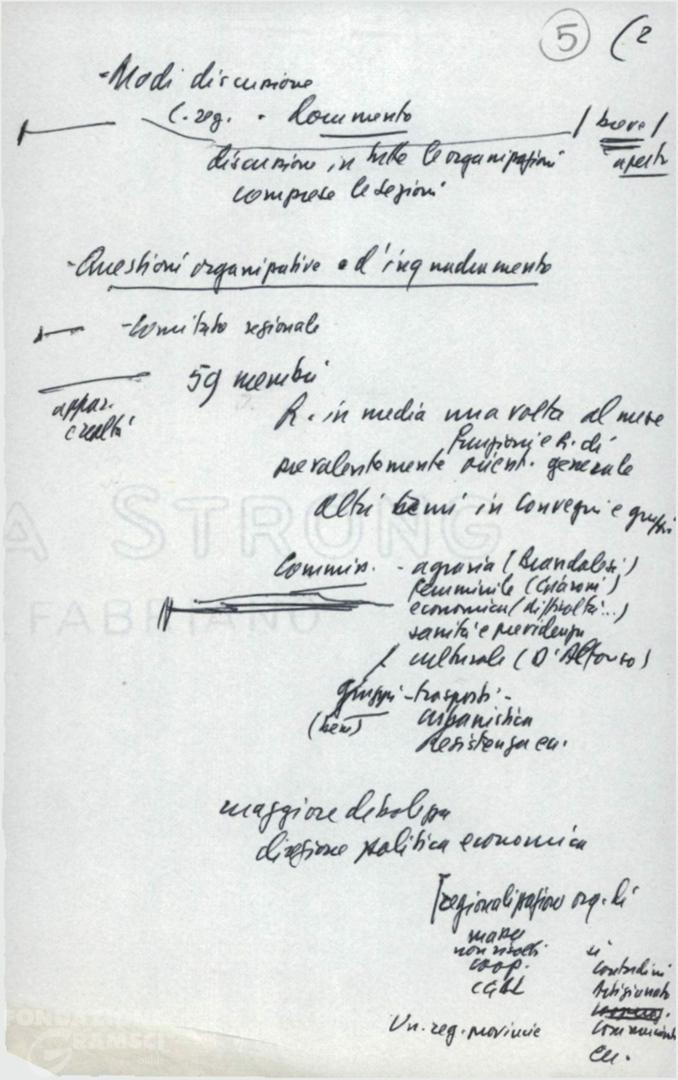 5 (2
- Modi discussione
C. reg. • Documento / breve /
aperto
discussione in tutte le organizzazioni
comprese le sezioni
- Questioni organizzative e d'inquadramento
- Comitato regionale
59 membri
appar.
R. in media una volta al mese
funzioni e R. di
prevalentemente orient. generale
altri temi in convegni e gruppi
Commiss. - agraria (Brandalesi)
femminile (Chiaroni)
economica (difficoltà...)
sanità e previdenza
culturale (D'Alfonso)
gruppi - trasporti -
(bene) urbanistica
Resistenza ecc.
maggiore debolezza
direzione politica economica
[regionalizzazione org. di
massa
non risolti
coop.
CGIL
si
contadini
Artigianato
Commercianti
ecc.
Un. reg. provincie
A STRONG
FABRIANO
FONDAZIONE
GRAMSCI